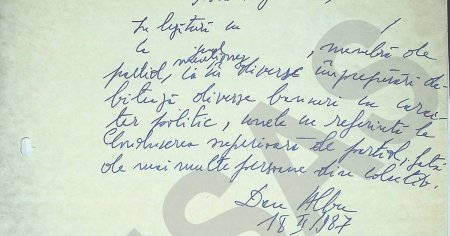 În legătură cu
menționez, membră de
partid, că în diverse împrejurări de-
bitează diverse bancuri cu carac-
ter politic, unele cu referință la
Conducerea superioară de partid, față
de mai multe persoane din colectiv.
Dan Albu
18 II/987